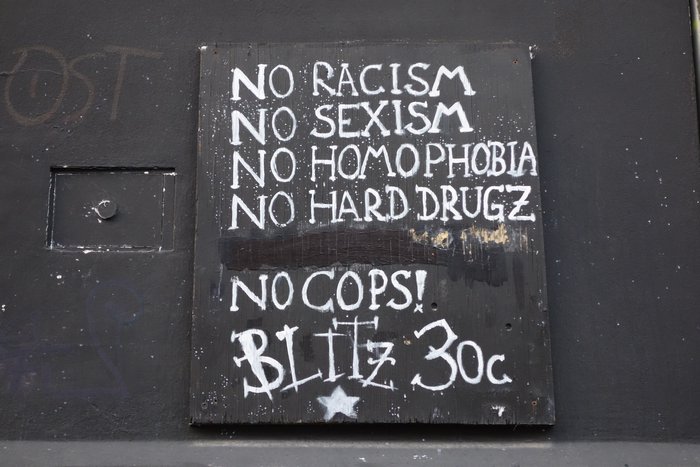 OST
NO RACISM
NO SEXISM
NO HOMOPHOBIA
NO HARD DRUGZ
NO COPS!
BLITZ 30c